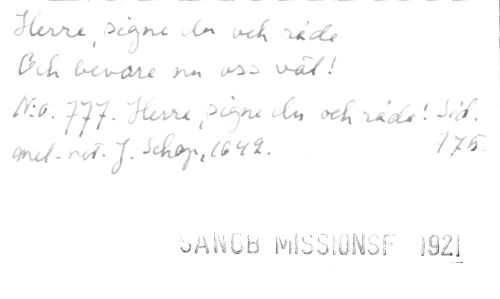 Herre, signe du och råde
Och bevare nu oss väl!
N:o. 777. Herre, signe du och råde! Sid.
mel.-not. J. Schop, 1642. 175.
SÅNGB MISSIONSF 1921